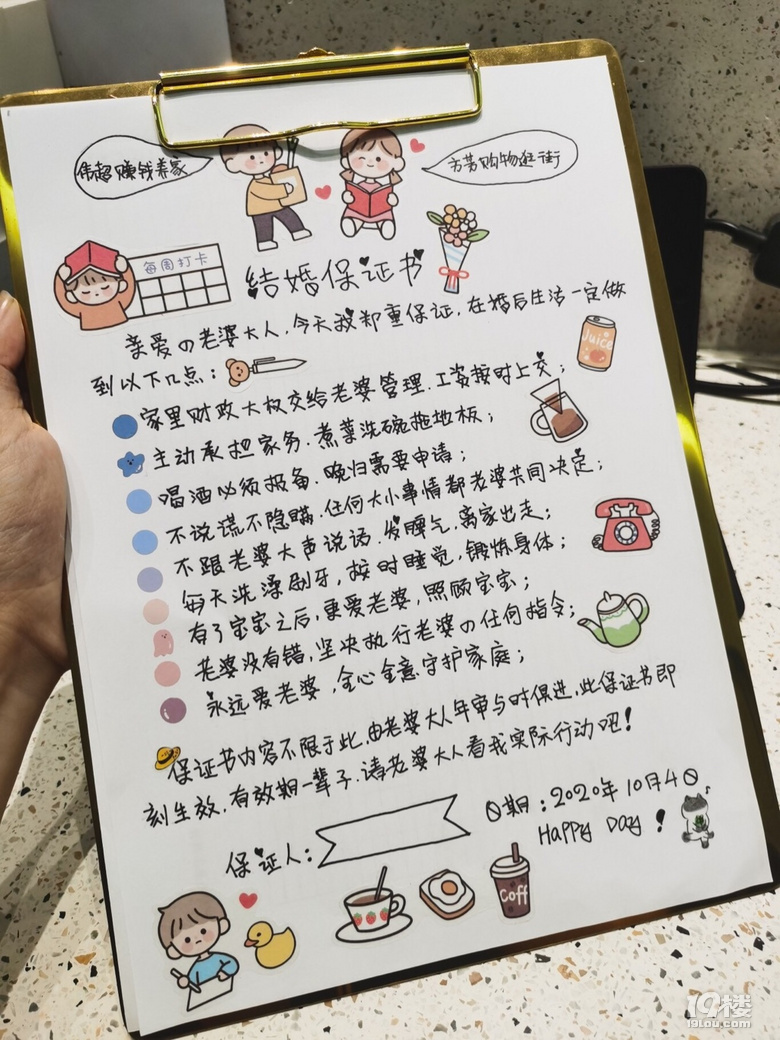 伟超赚钱养家
方芳购物逛街
每周打卡
结婚保证书
亲爱の老婆大人,今天我郑重保证,在婚后生活一定做
到以下几点:
Juice
家里财政大权交给老婆管理.工资按时上交;
主动承担家务.煮菜洗碗拖地板;
喝酒必须报备.晚归需要申请;
不说谎不隐瞒.任何大小事情都老婆共同决定;
不跟老婆大声说话.发脾气,离家出走;
每天洗漂刷牙,按时睡觉,锻炼身体;
有了宝宝之后,更爱老婆,照顾宝宝;
老婆没有错,坚决执行老婆の任何指令;
永远爱老婆,全心全意守护家庭;
保证书内容不限于此.由老婆大人年审与时俱进,此保证书即
刻生效.有效期一辈子.请老婆大人看我实际行动吧!
日期:2020年10月4日
Happy Day!
保证人:
Coff
19楼
19lou.com